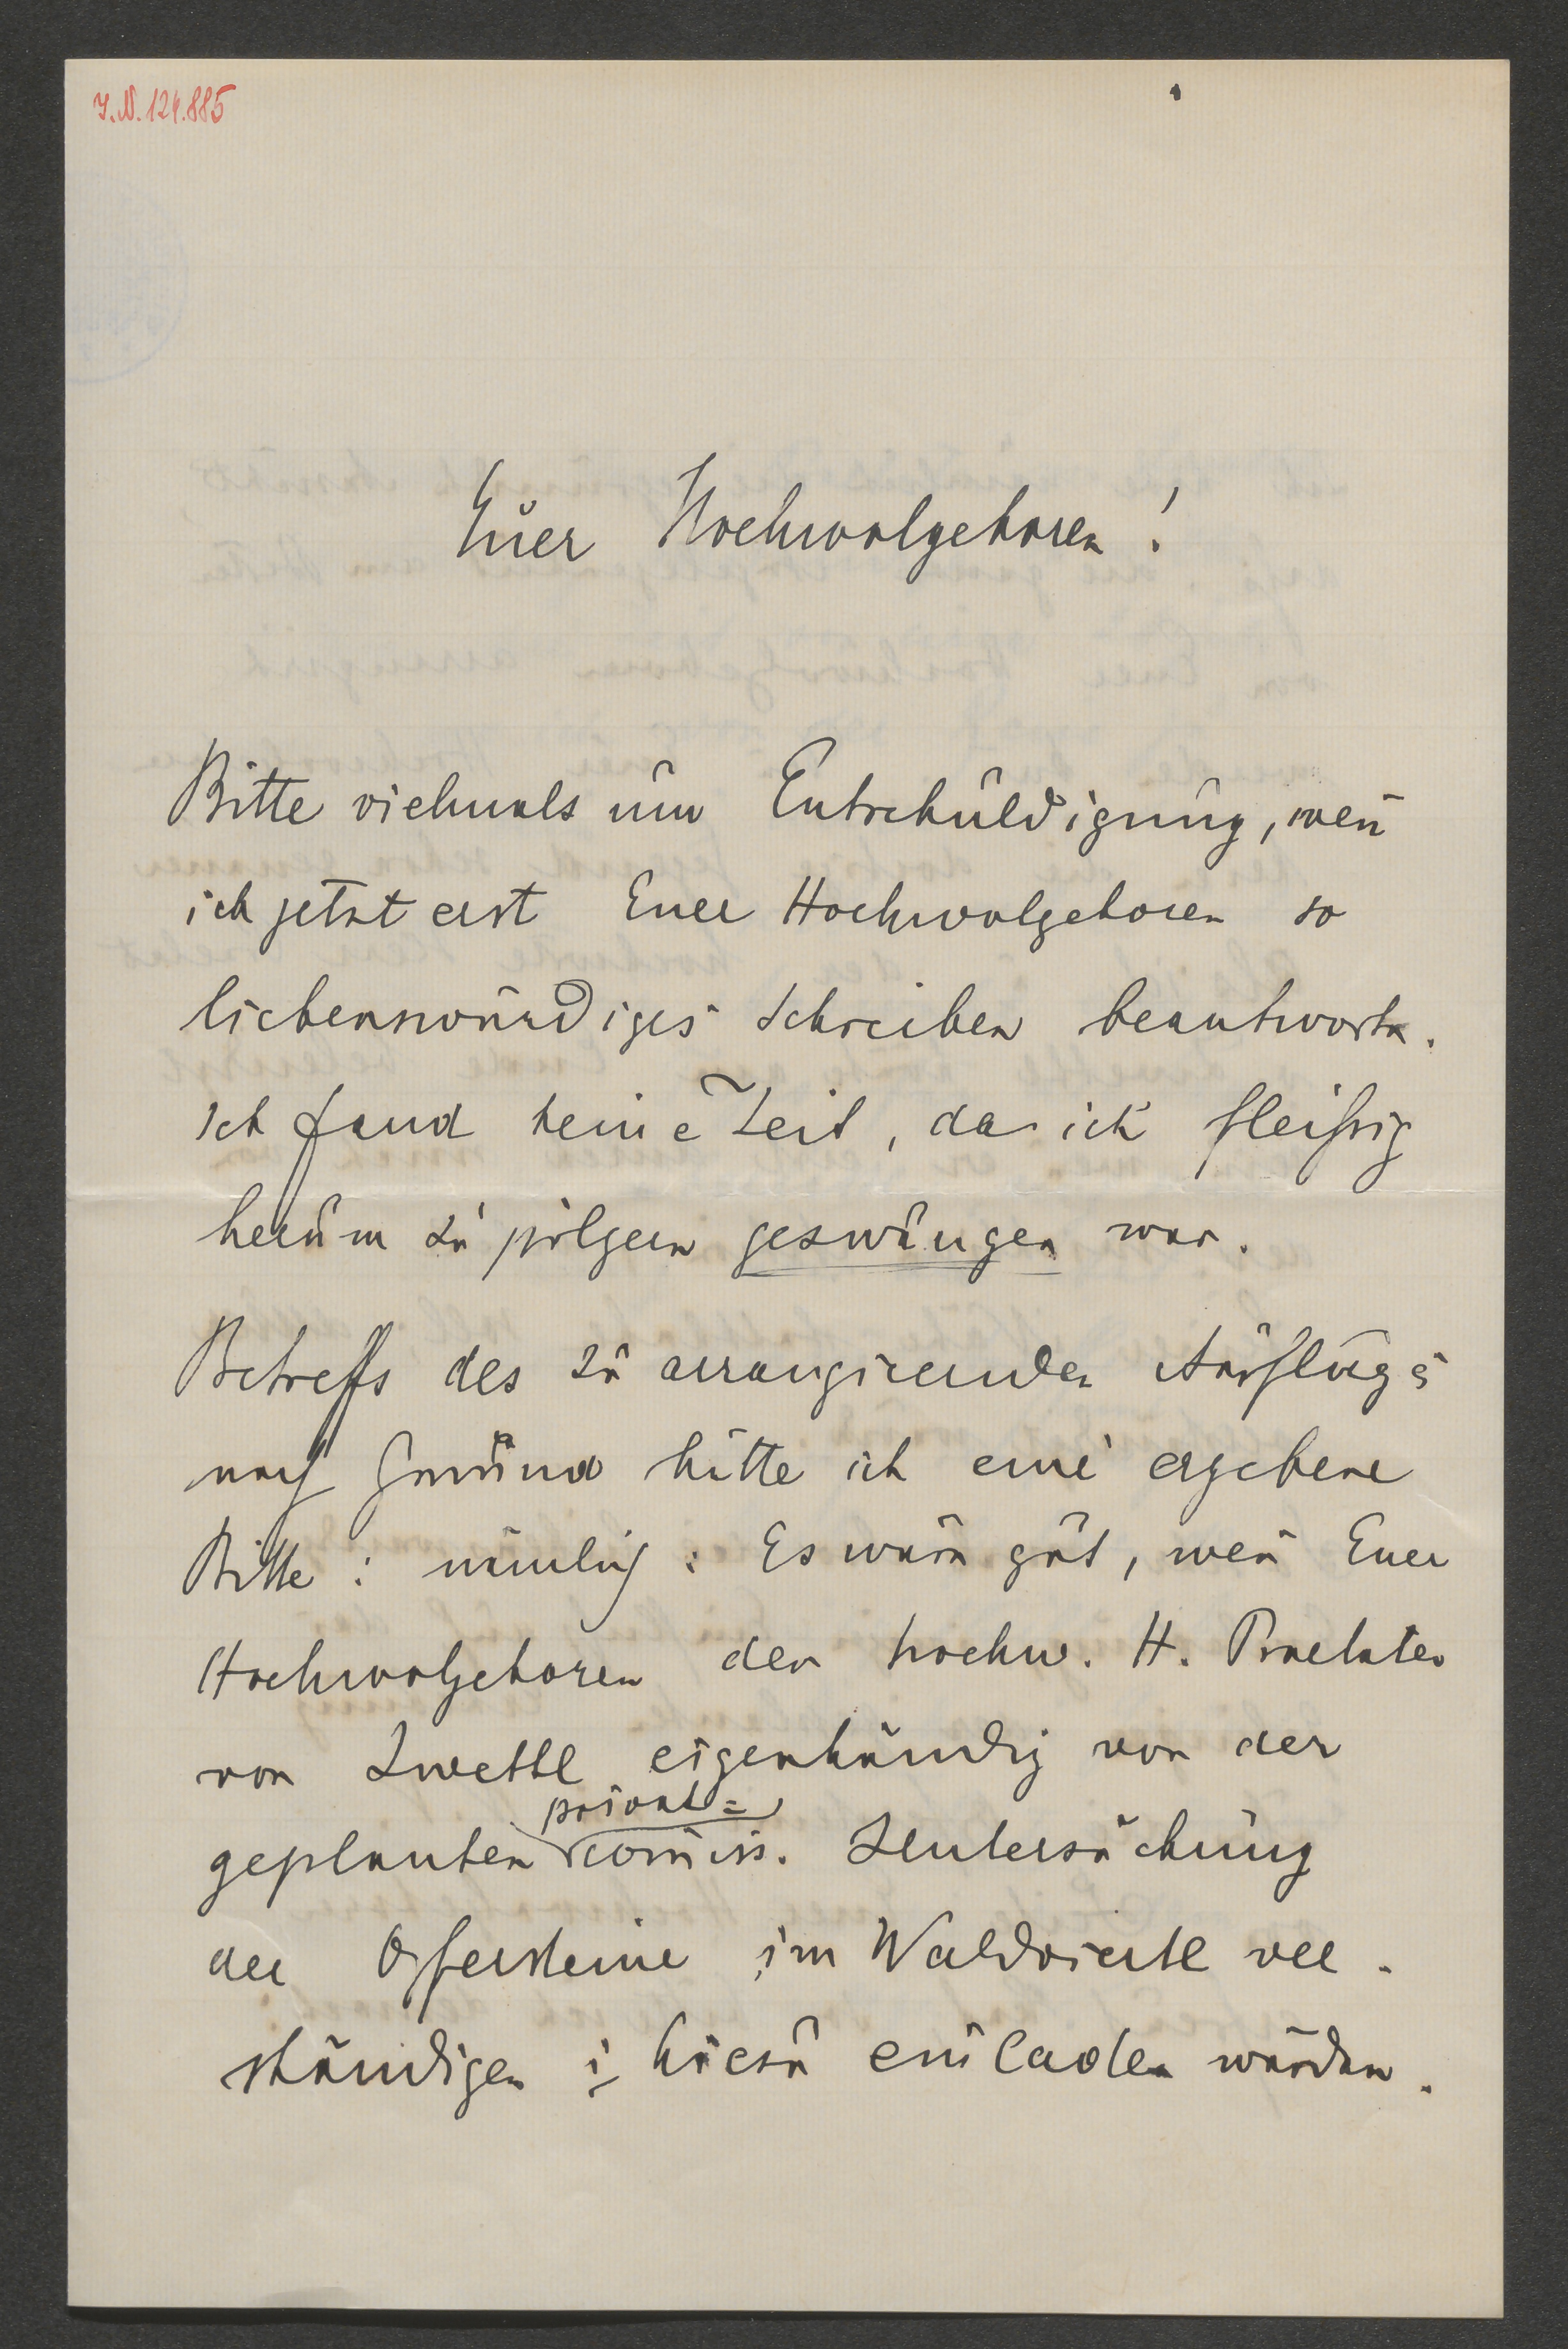 I.N. 124.885
Euer Hochwolgeboren!
Bitte vielmals um Entschuldigung, weñ
ich jetzt erst Euer Hochwolgeboren so
liebenswürdiges Schreiben beantworte.
Ich fand keine Zeit, da ich fleißig
herum zu pilgern gezwungen war.
Betreffs des zu arrangirenden Ausflugs
nach Gmünd hätte ich eine ergebene
Bitte: nämlich: Es wäre gut, weñ Euer
Hochwolgeboren den hochw. H. Praelaten
von Zwettl eigenhändig von der
privat=
geplanten com̄iss. Untersuchung
der Opfersteine im Waldviertl ver-
ständigen & hiezu einladen würden.